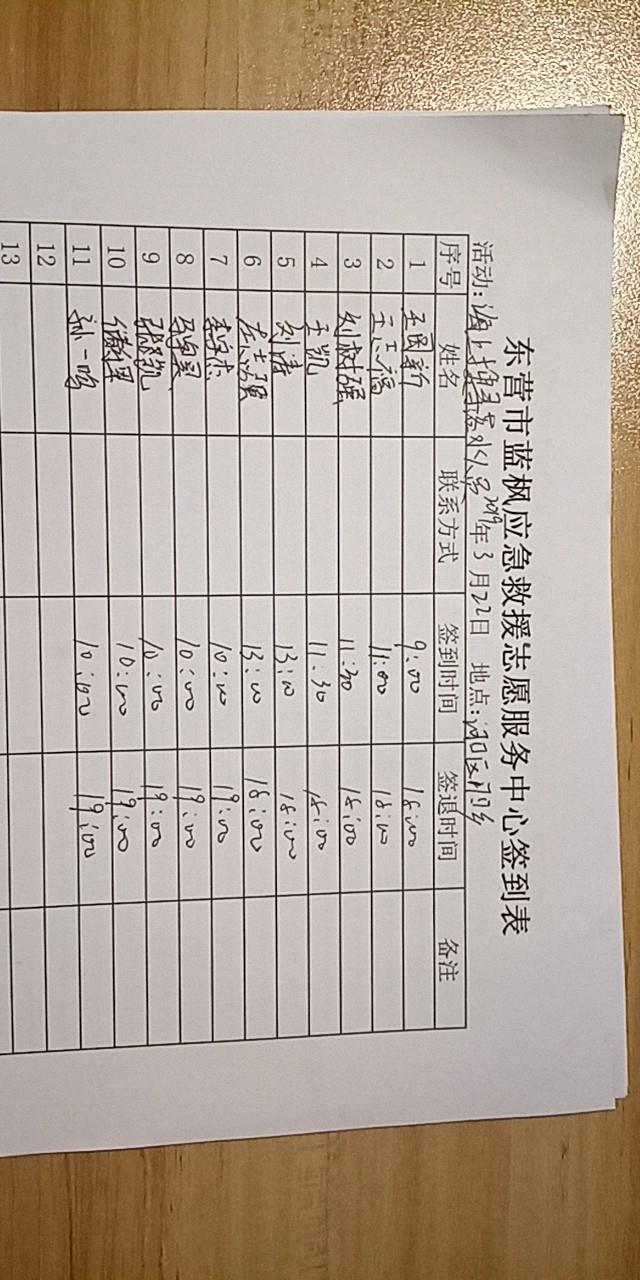 东营市蓝枫应急救援志愿服务中心签到表
活动:海上搜寻落水人员 2019年3月22日 地点:河口区
序号 姓名 联系方式 签到时间 签退时间 备注
1 王国新 9:00 18:00
2 王志福 11:00 18:00
3 刘树强 11:30 18:00
4 王凯 11:30 18:00
5 刘涛 13:00 18:00
6 左志强 13:00 18:00
7 李宗杰 10:00 19:00
8 10:00 19:00
9 10:00 19:00
10 10:00 19:00
11 孙一鸣 10:00 19:00
12
13